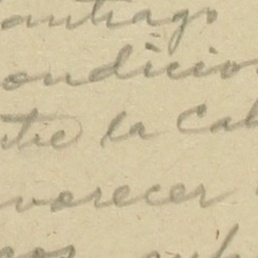 antiago
ondicio
tre la Cal
vorecer